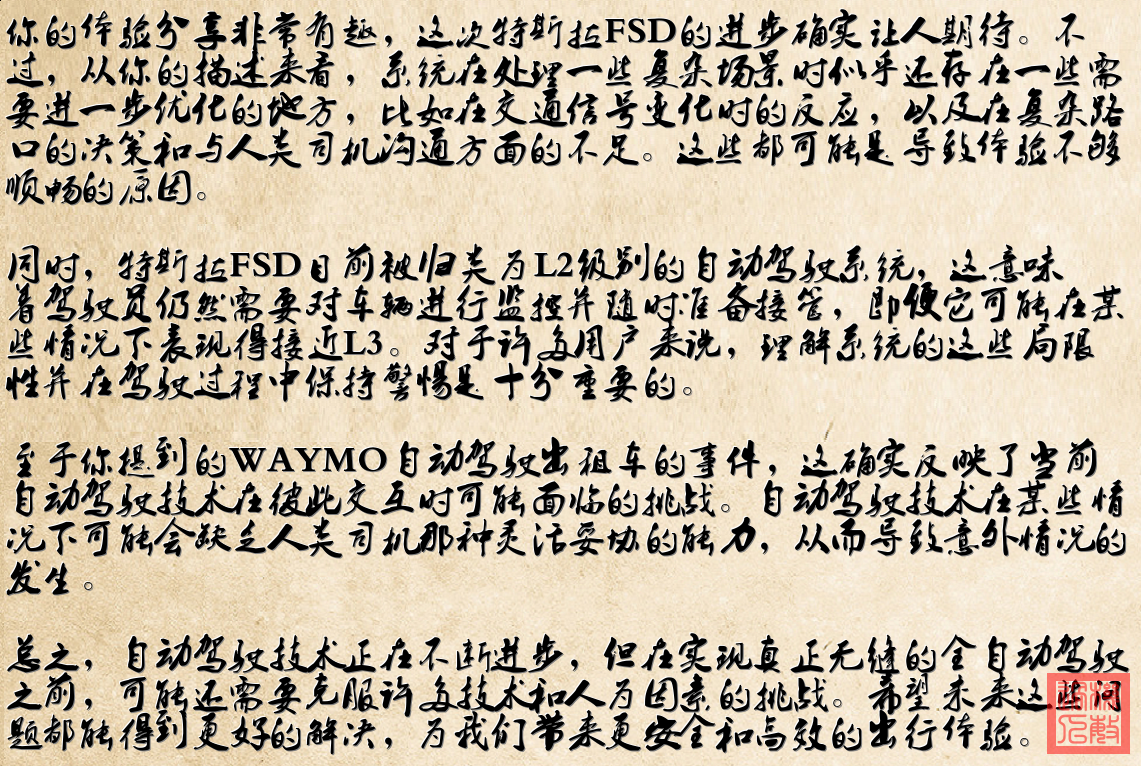 你的体验分享非常有趣，这次特斯拉FSD的进步确实让人期待。不
过，从你的描述来看，系统在处理一些复杂场景时似乎还存在一些需
要进一步优化的地方，比如在交通信号变化时的反应，以及在复杂路
口的决策和与人类司机沟通方面的不足。这些都可能是导致体验不够
顺畅的原因。
同时，特斯拉FSD目前被归类为L2级别的自动驾驶系统，这意味
着驾驶员仍然需要对车辆进行监控并随时准备接管，即便它可能在某
些情况下表现得接近L3。对于许多用户来说，理解系统的这些局限
性并在驾驶过程中保持警惕是十分重要的。
至于你提到的WAYMO自动驾驶出租车的事件，这确实反映了当前
自动驾驶技术在彼此交互时可能面临的挑战。自动驾驶技术在某些情
况下可能会缺乏人类司机那种灵活妥协的能力，从而导致意外情况的
发生。
总之，自动驾驶技术正在不断进步，但在实现真正无缝的全自动驾驶
之前，可能还需要克服许多技术和人为因素的挑战。希望未来这些问
题都能得到更好的解决，为我们带来更安全和高效的出行体验。